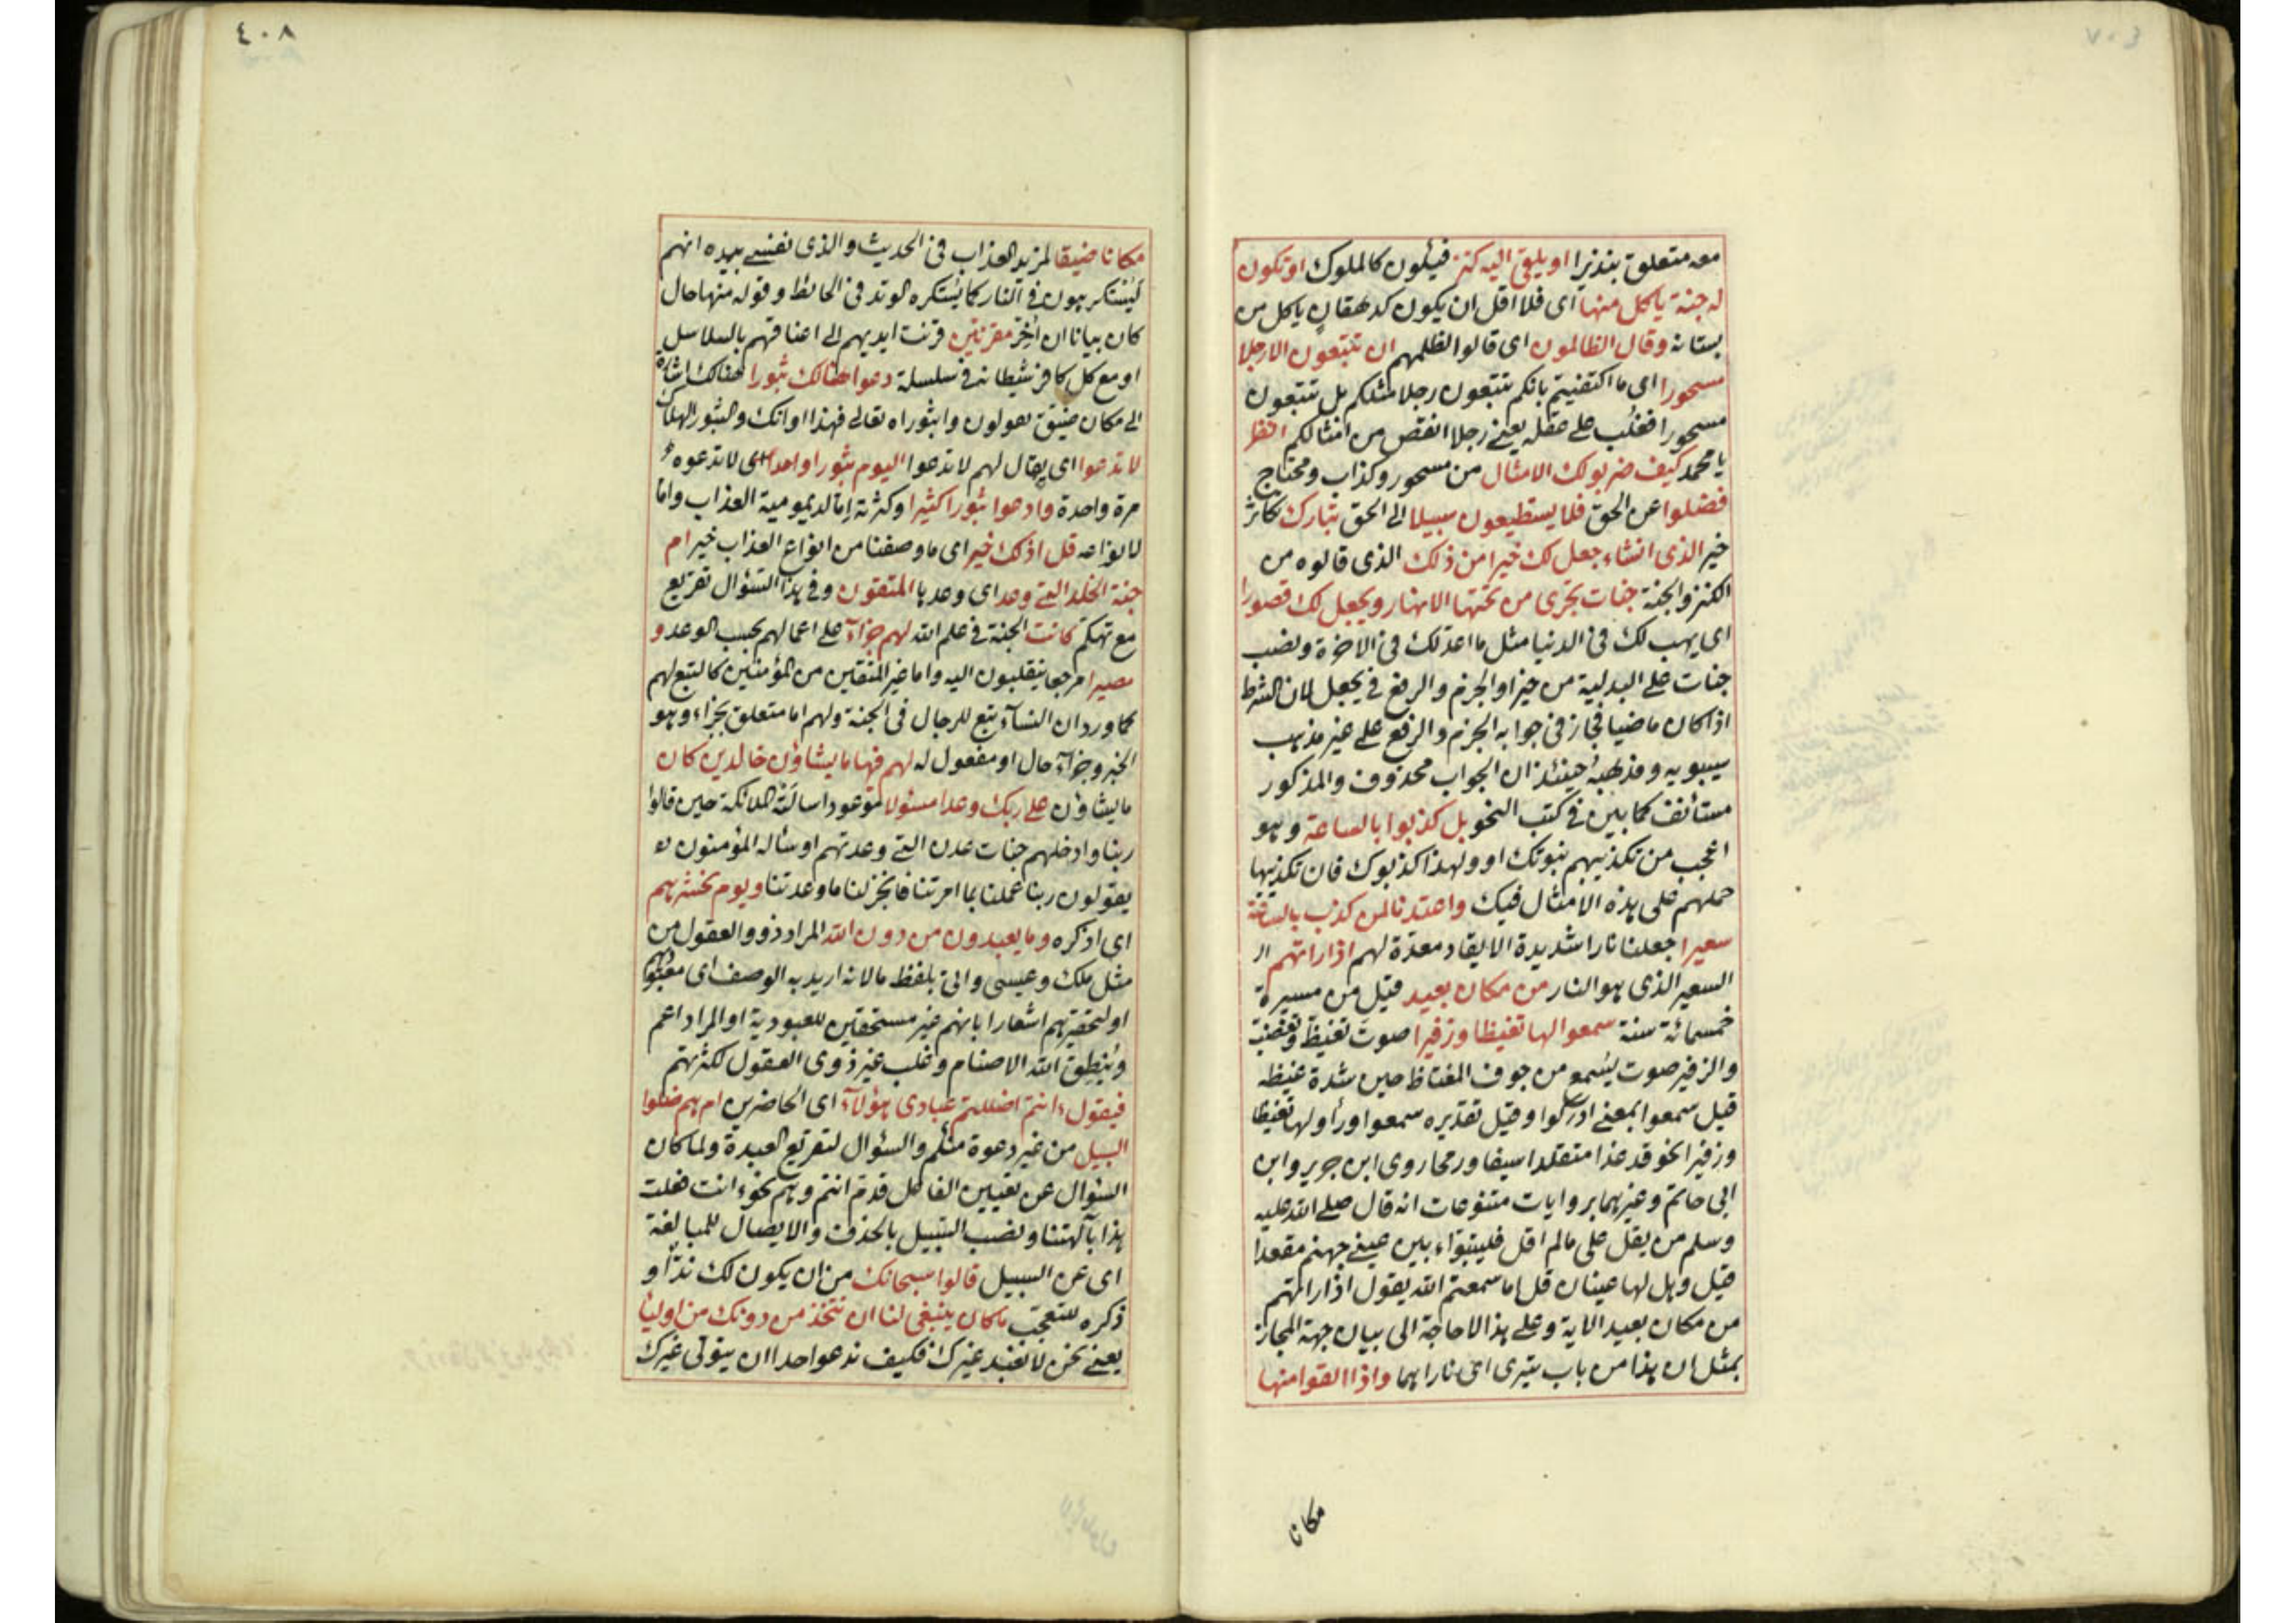 ٤٠٧
معه متعلق بنذيرا او يلقى اليه كنز فيكون كالملوك او تكون
له جنة ياكل منها اى فلا اقل ان يكون كدهقان ياكل من
بستانه وقال الظالمون اى قالوا لظلمهم ان تتبعون الا رجلا
مسحورا اى ما اكتفيتم بانكم تتبعون رجلا مثلكم بل تتبعون
مسحورا فغلب على عقله يعنى رجلا انقص من امثالكم انظر
يا محمد كيف ضربوا لك الامثال من مسحور وكذاب ومحتاج
فضلوا عن الحق فلا يستطيعون سبيلا الى الحق تبارك تكاثر
خير الذى ان شاء جعل لك خيرا من ذلك الذى قالوه من
الكنز والجنة جنات تجرى من تحتها الانهار ويجعل لك قصورا
اى يهب لك فى الدنيا مثل ما اعد لك فى الاخرة ونصب
جنات على البدلية من خيرا والجزم والرفع فى يجعل لان الشرط
اذا كان ماضيا فجاز فى جوابه الجزم والرفع على غير مذهب
سيبويه ومذهبه حينئذ ان الجواب محذوف والمذكور
مستأنف كما بين فى كتب النحو بل كذبوا بالساعة وهو
اعجب من تكذيبهم بنبوتك او ولهذا كذبوك فان تكذيبها
حملهم على هذه الامثال فيك واعتدنا لمن كذب بالساعة
سعيرا جعلنا نارا شديدة الايقاد معدة لهم اذا راتهم اى
السعير الذى هو النار من مكان بعيد قيل من مسيرة
خمسمائة سنة سمعوا لها تغيظا وزفيرا صوت تغيظ وتغضب
والزفير صوت يسمع من جوف المغتاظ حين شدة غيظه
قيل سمعوا بمعنى ادركوا وقيل تقديره سمعوا وراوا لها تغيظا
وزفيرا نحو قد غدا متقلدا سيفا ورمحا روى ابن جرير وابن
ابى حاتم وغيرهما بروايات متنوعات انه قال صلى الله عليه
وسلم من يقل على مالم اقل فليتبوّاء بين عينى جهنم مقعدا
قيل وهل لها عينان قال اما سمعتم الله يقول اذا راتهم
من مكان بعيد الاية وعلى هذا لا حاجة الى بيان جهة المجاز
بمثل ان هذا من باب تترى اى ناراهما واذا القوا منها
مكانا
٤٠٨
مكانا ضيقا لمزيد العذاب فى الحديث والذى نفسى بيده انهم
ليستكرهون فى النار كما يستكره الوتد فى الحائط وقوله منها حال
كان بيانا ان أخّر مقرنين قرنت ايديهم الى اعناقهم بالسلاسل
او مع كل كافر شيطانه فى سلسلة دعوا هنالك ثبورا هنالك اشارة
الى مكان ضيق يقولون وا ثبوراه تعالى فهذا اوانك والثبور الهلاك
لا تدعوا اى يقال لهم لا تدعوا اليوم ثبورا واحدا اى لا تدعوه
مرة واحدة وادعوا ثبورا كثيرا وكثرته إما لديمومية العذاب واما
لانواعه قل اذلك خير اى ما وصفنا من انواع العذاب خير ام
جنة الخلد التى وعد اى وعد بها المتقون وفى هذا السؤال تقريع
مع تهكم كانت الجنة فى علم الله لهم جزاء على اعمالهم بحسب الوعد و
مصيرا مرجعا ينقلبون اليه واما غير المتقين من المؤمنين كالتبع لهم
كما ورد ان النساء تبع للرجال فى الجنة ولهم اما متعلق بجزاء وهو
الخبر وجزاء حال او مفعول له لهم فيها ما يشاؤن خالدين كان
ما يشاؤن على ربك وعدا مسئولا موعودا سالته الملائكة حين قالوا
ربنا وادخلهم جنات عدن التى وعدتهم او سأله المؤمنون
يقولون ربنا عملنا بما امرتنا فانجز لنا ما وعدتنا ويوم نحشرهم
اى اذكره وما يعبدون من دون الله المراد ذووا العقول من
مثل ملك وعيسى واتى بلفظ ما لانه اريد به الوصف اى معبودهم
او لتحقيرهم اشعارا بانهم غير مستحقين للعبودية او المراد اعم
وينطق الله الاصنام وغلب غير ذوى العقول لكثرتهم
فيقول ءانتم اضللتم عبادى هؤلاء اى الحاضرين ام هم ضلوا
السبيل من غير دعوة منكم والسؤال لتقريع العبدة ولما كان
السؤال عن تعيين الفاعل قدم انتم وهم نحو ءانت فعلت
هذا بآلهتنا ونصب السبيل بالحذف والايصال للمبالغة
اى عن السبيل قالوا سبحانك من ان يكون لك ندّا و
ذكره للتعجب ما كان ينبغى لنا ان نتخذ من دونك من اوليا
يعنى نحن لا نعبد غيرك فكيف ندعوا احدا ان يتولى غيرك